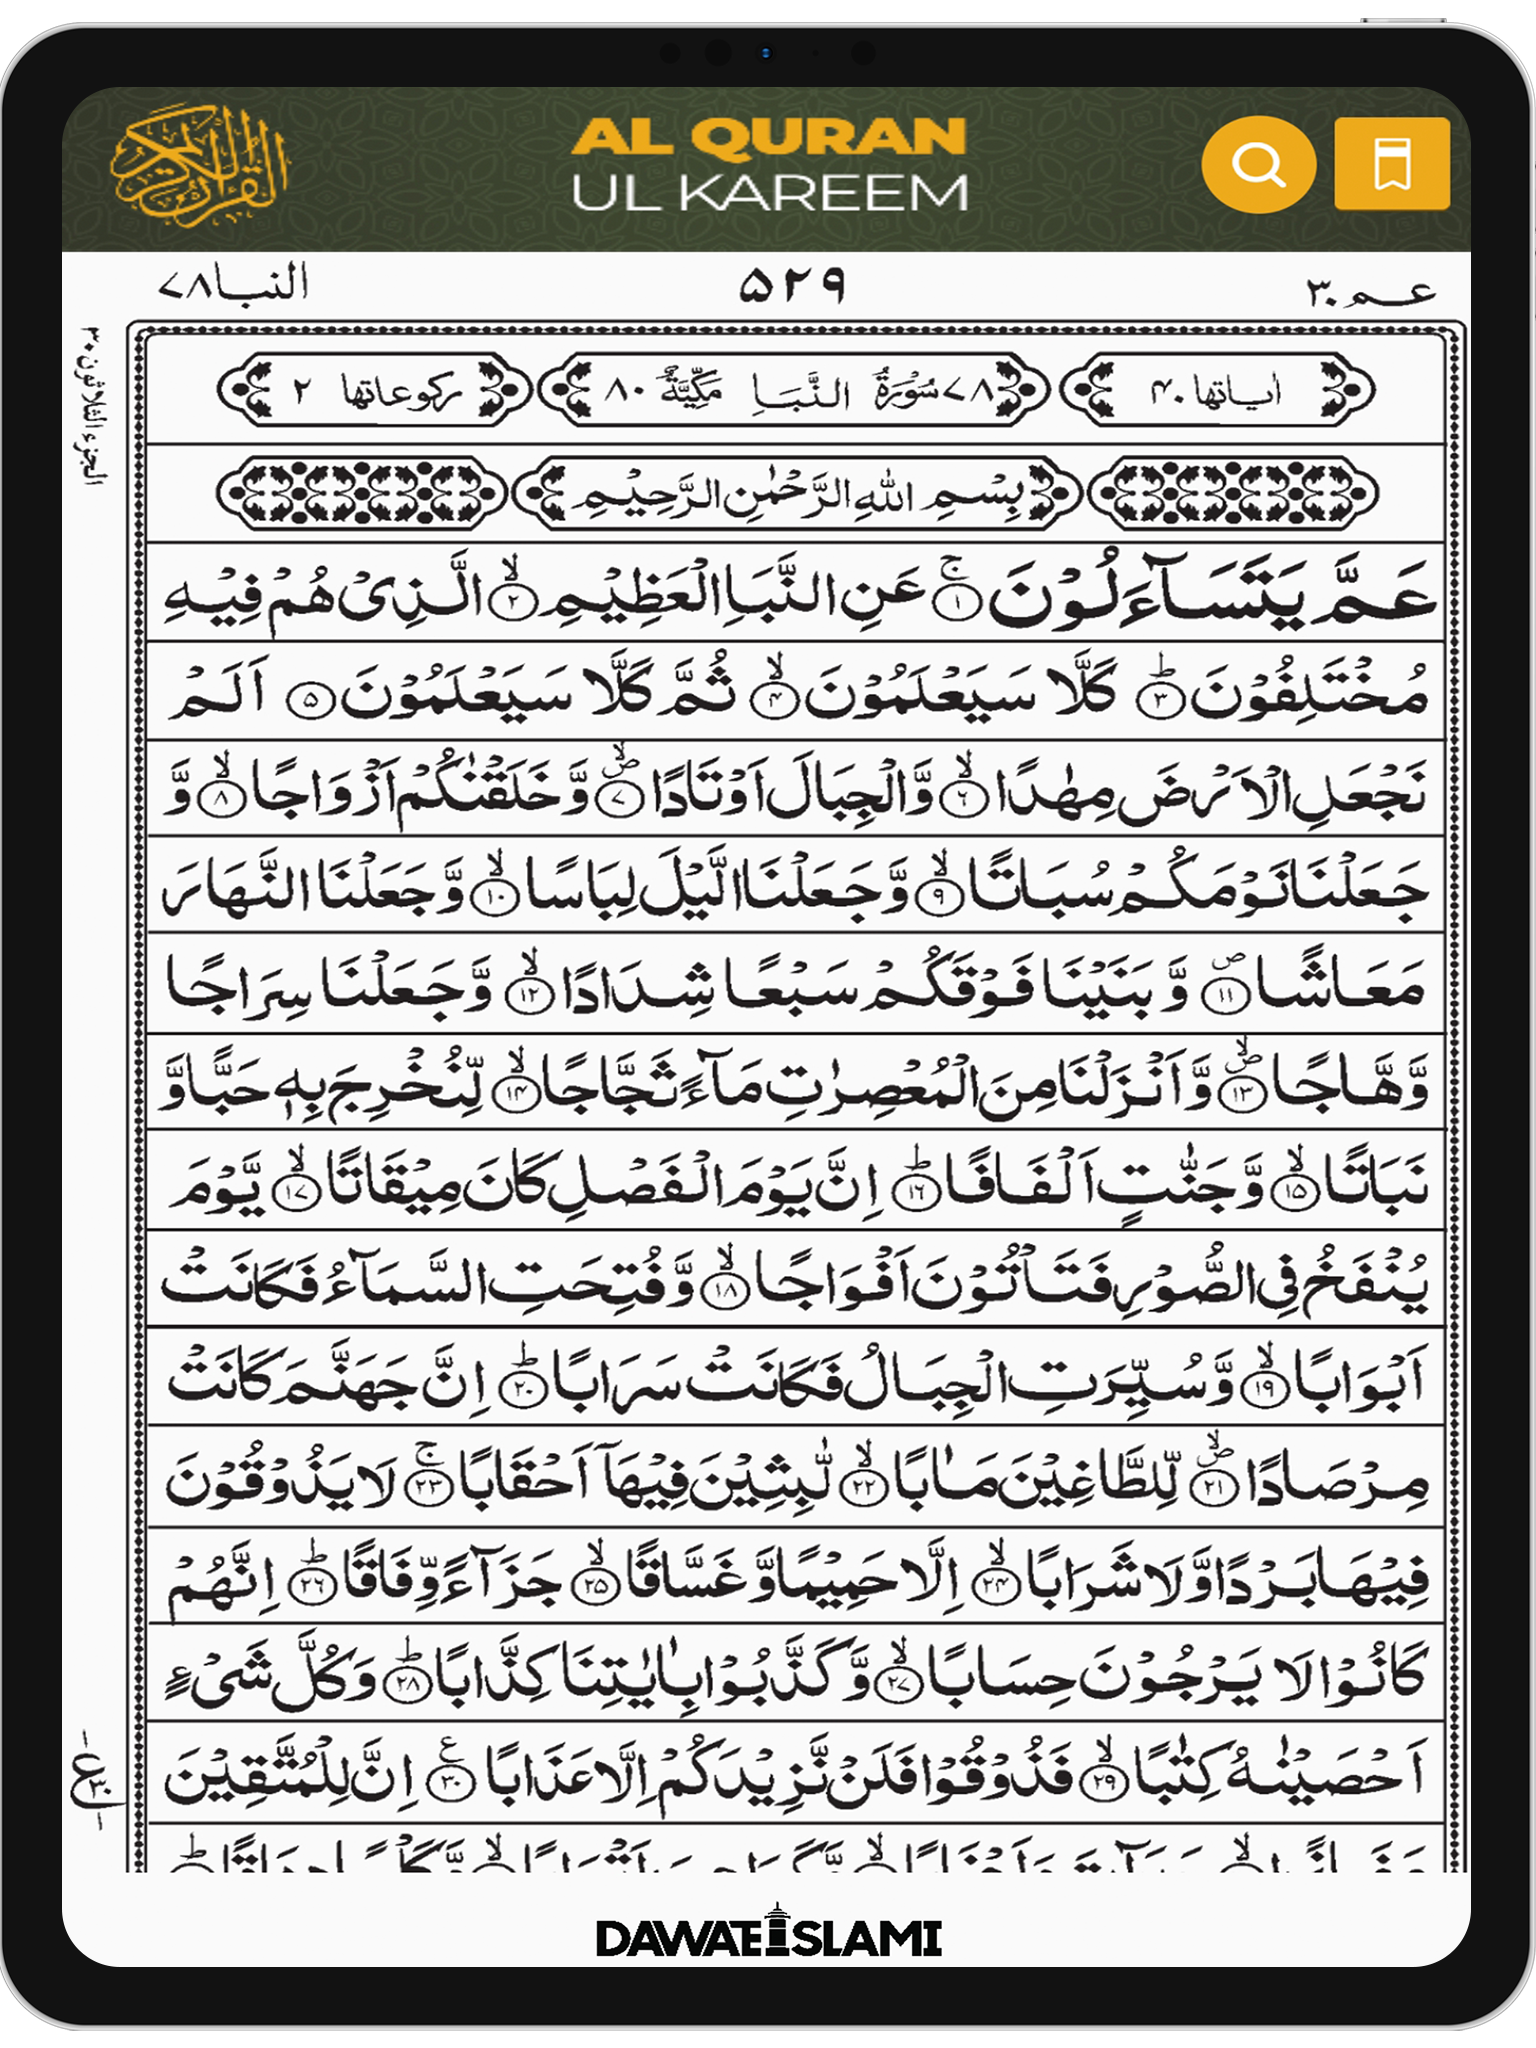 AL QURAN
UL KAREEM
عـم ۳۰
۵۲۹
النبا ۷۸
الجزء الثلاثون ۳۰
اٰیاتها ۴۰
۷۸ سُوْرَةُ النَّبَاِ مَكِّیَّةٌ ۸۰
ركوعاتها ۲
بِسْمِ اللّٰهِ الرَّحْمٰنِ الرَّحِیْمِ
عَمَّ یَتَسَآءَلُوْنَۚ(۱) عَنِ النَّبَاِ الْعَظِیْمِۙ(۲) الَّذِیْ هُمْ فِیْهِ
مُخْتَلِفُوْنَؕ(۳) كَلَّا سَیَعْلَمُوْنَۙ(۴) ثُمَّ كَلَّا سَیَعْلَمُوْنَ(۵) اَلَمْ
نَجْعَلِ الْاَرْضَ مِهٰدًاۙ(۶) وَّ الْجِبَالَ اَوْتَادًاﭪۙ(۷) وَّ خَلَقْنٰكُمْ اَزْوَاجًاۙ(۸) وَّ
جَعَلْنَا نَوْمَكُمْ سُبَاتًاۙ(۹) وَّ جَعَلْنَا الَّیْلَ لِبَاسًاۙ(۱۰) وَّ جَعَلْنَا النَّهَارَ
مَعَاشًا۪(۱۱) وَّ بَنَیْنَا فَوْقَكُمْ سَبْعًا شِدَادًاۙ(۱۲) وَّ جَعَلْنَا سِرَاجًا
وَّهَّاجًاﭪۙ(۱۳) وَّ اَنْزَلْنَا مِنَ الْمُعْصِرٰتِ مَآءً ثَجَّاجًاۙ(۱۴) لِّنُخْرِ جَ بِهٖ حَبًّا وَّ
نَبَاتًاۙ(۱۵) وَّ جَنّٰتٍ اَلْفَافًاؕ(۱۶) اِنَّ یَوْمَ الْفَصْلِ كَانَ مِیْقَاتًاۙ(۱۷) یَّوْمَ
یُنْفَخُ فِی الصُّوْرِ فَتَاْتُوْنَ اَفْوَاجًاۙ(۱۸) وَّ فُتِحَتِ السَّمَآءُ فَكَانَتْ
اَبْوَابًاۙ(۱۹) وَّ سُیِّرَتِ الْجِبَالُ فَكَانَتْ سَرَابًاؕ(۲۰) اِنَّ جَهَنَّمَ كَانَتْ
مِرْصَادًاﭪۙ(۲۱) لِّلطَّاغِیْنَ مَاٰبًاۙ(۲۲) لّٰبِثِیْنَ فِیْهَاۤ اَحْقَابًاۚ(۲۳) لَا یَذُوْقُوْنَ
فِیْهَا بَرْدًا وَّ لَا شَرَابًاۙ(۲۴) اِلَّا حَمِیْمًا وَّ غَسَّاقًاۙ(۲۵) جَزَآءً وِّفَاقًاؕ(۲۶) اِنَّهُمْ
كَانُوْا لَا یَرْجُوْنَ حِسَابًاۙ(۲۷) وَّ كَذَّبُوْا بِاٰیٰتِنَا كِذَّابًاؕ(۲۸) وَ كُلَّ شَیْءٍ
اَحْصَیْنٰهُ كِتٰبًاۙ(۲۹) فَذُوْقُوْا فَلَنْ نَّزِیْدَكُمْ اِلَّا عَذَابًا۠(۳۰) اِنَّ لِلْمُتَّقِیْنَ
DAWATEISLAMI